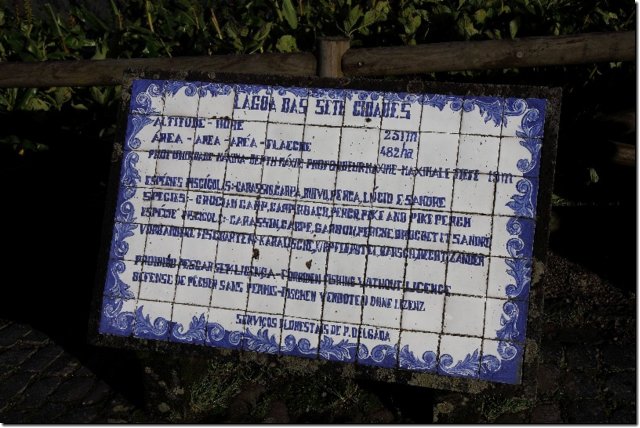 LAGOA DAS SETE CIDADES
ALTITUDE - HÖHE 251m
ÁREA - AREA - ÁREA - FLAECHE 482ha
PROFUNDIDADE MÁXIMA - DEPTH MAXIM - PROFONDEUR MAXIME - MAXIMALE TIEFE
ESPÉCIES PISCÍCOLAS:- CARASSIO, CARPA, RUIVO, PERCA, LÚCIO E SANDRE
SPECIES:- CRUCIAN CARP, CARP, ROACH, PERCH, PIKE AND PIKE PERCH
ESPÉCIE PISCICOLE:- CARASSIN, CARPE, GARDON, PERCHE, BROCHET ET SANDRE
FISCHARTEN: KARAUSCHE, BARSCH, HECHT, ZANDER
PROIBIDO PESCAR SEM LICENÇA - FORBIDEN FISHING WITHOUT LICENCE
DÉFENSE DE PÊCHER SANS PERMIS - FISCHEN VERBOTEN OHNE LIZENZ
SERVIÇOS FLORESTAIS DE P. DELGADA